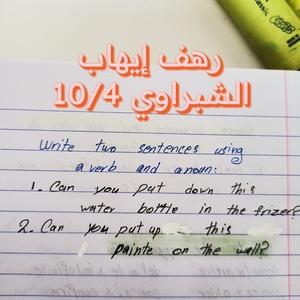 رهف إيهاب
الشبراوي 10/4
Write two sentences using
a verb and a noun:
1. Can you put down this
water bottle in the frizer?
2. Can you put up this
painte on the wall?